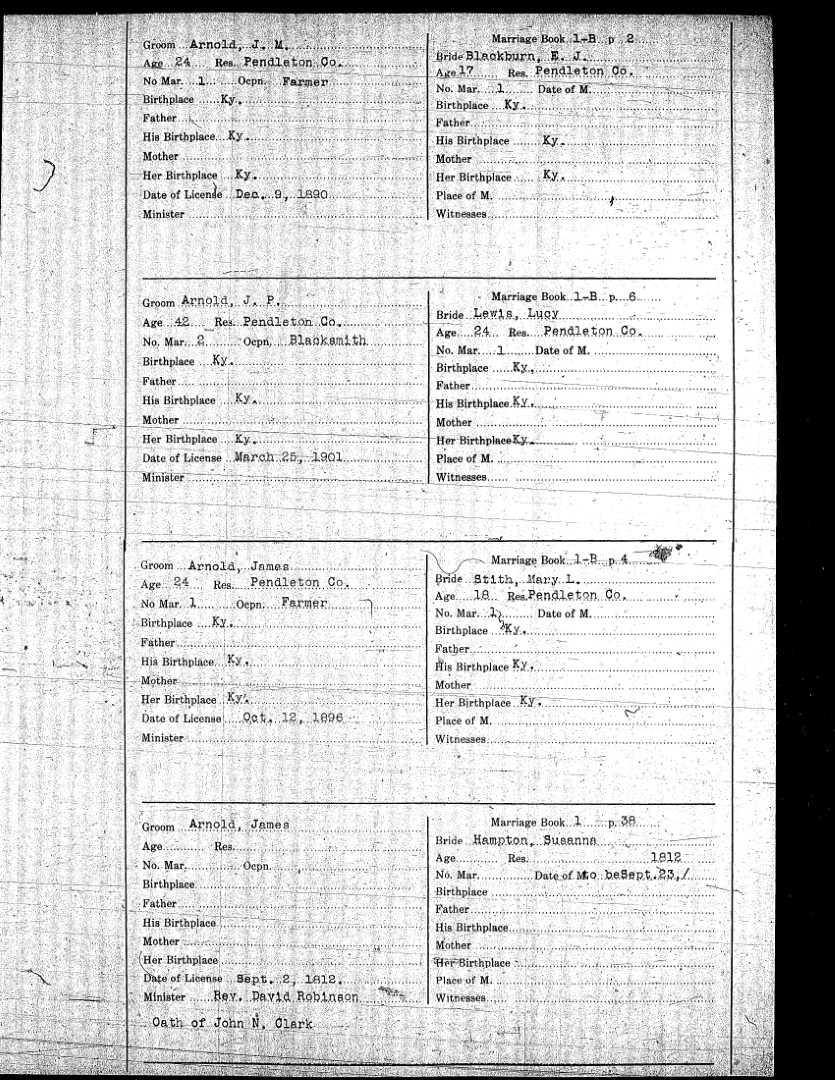 Groom Arnold, J. M.
Age 24 Res. Pendleton Co.
No Mar. 1 Ocpn. Farmer
Birthplace Ky.
Father
His Birthplace Ky.
Mother
Her Birthplace Ky.
Date of License Dec. 9, 1890
Minister
Marriage Book 1-B p 2
Bride Blackburn, E. J.
Age 17 Res. Pendleton Co.
No. Mar. 1 Date of M.
Birthplace Ky.
Father
His Birthplace Ky.
Mother
Her Birthplace Ky.
Place of M.
Witnesses
Groom Arnold, J. P.
Age 42 Res. Pendleton Co.
No. Mar. 2 Ocpn. Blacksmith
Birthplace Ky.
Father
His Birthplace Ky.
Mother
Her Birthplace Ky.
Date of License March 25, 1901
Minister
Marriage Book 1-B p. 6
Bride Lewis, Lucy
Age 24 Res. Pendleton Co.
No. Mar. 1 Date of M.
Birthplace Ky.
Father
His Birthplace Ky.
Mother
Her Birthplace Ky.
Place of M.
Witnesses
Groom Arnold, James
Age 24 Res. Pendleton Co.
No Mar. 1 Ocpn. Farmer
Birthplace Ky.
Father
His Birthplace Ky.
Mother
Her Birthplace Ky.
Date of License Oct. 12, 1896
Minister
Marriage Book 1-B p. 4
Bride Stith, Mary L.
Age 18 Res. Pendleton Co.
No. Mar. 1 Date of M.
Birthplace Ky.
Father
His Birthplace Ky.
Mother
Her Birthplace Ky.
Place of M.
Witnesses
Groom Arnold, James
Age Res.
No. Mar. Ocpn.
Birthplace
Father
His Birthplace
Mother
Her Birthplace
Date of License Sept. 2, 1812.
Minister Rev. David Robinson
Oath of John N. Clark
Marriage Book 1 p. 38
Bride Hampton, Susanna
Age Res. 1812
No. Mar. Date of M. to be Sept. 23, /
Birthplace
Father
His Birthplace
Mother
Her Birthplace
Place of M.
Witnesses